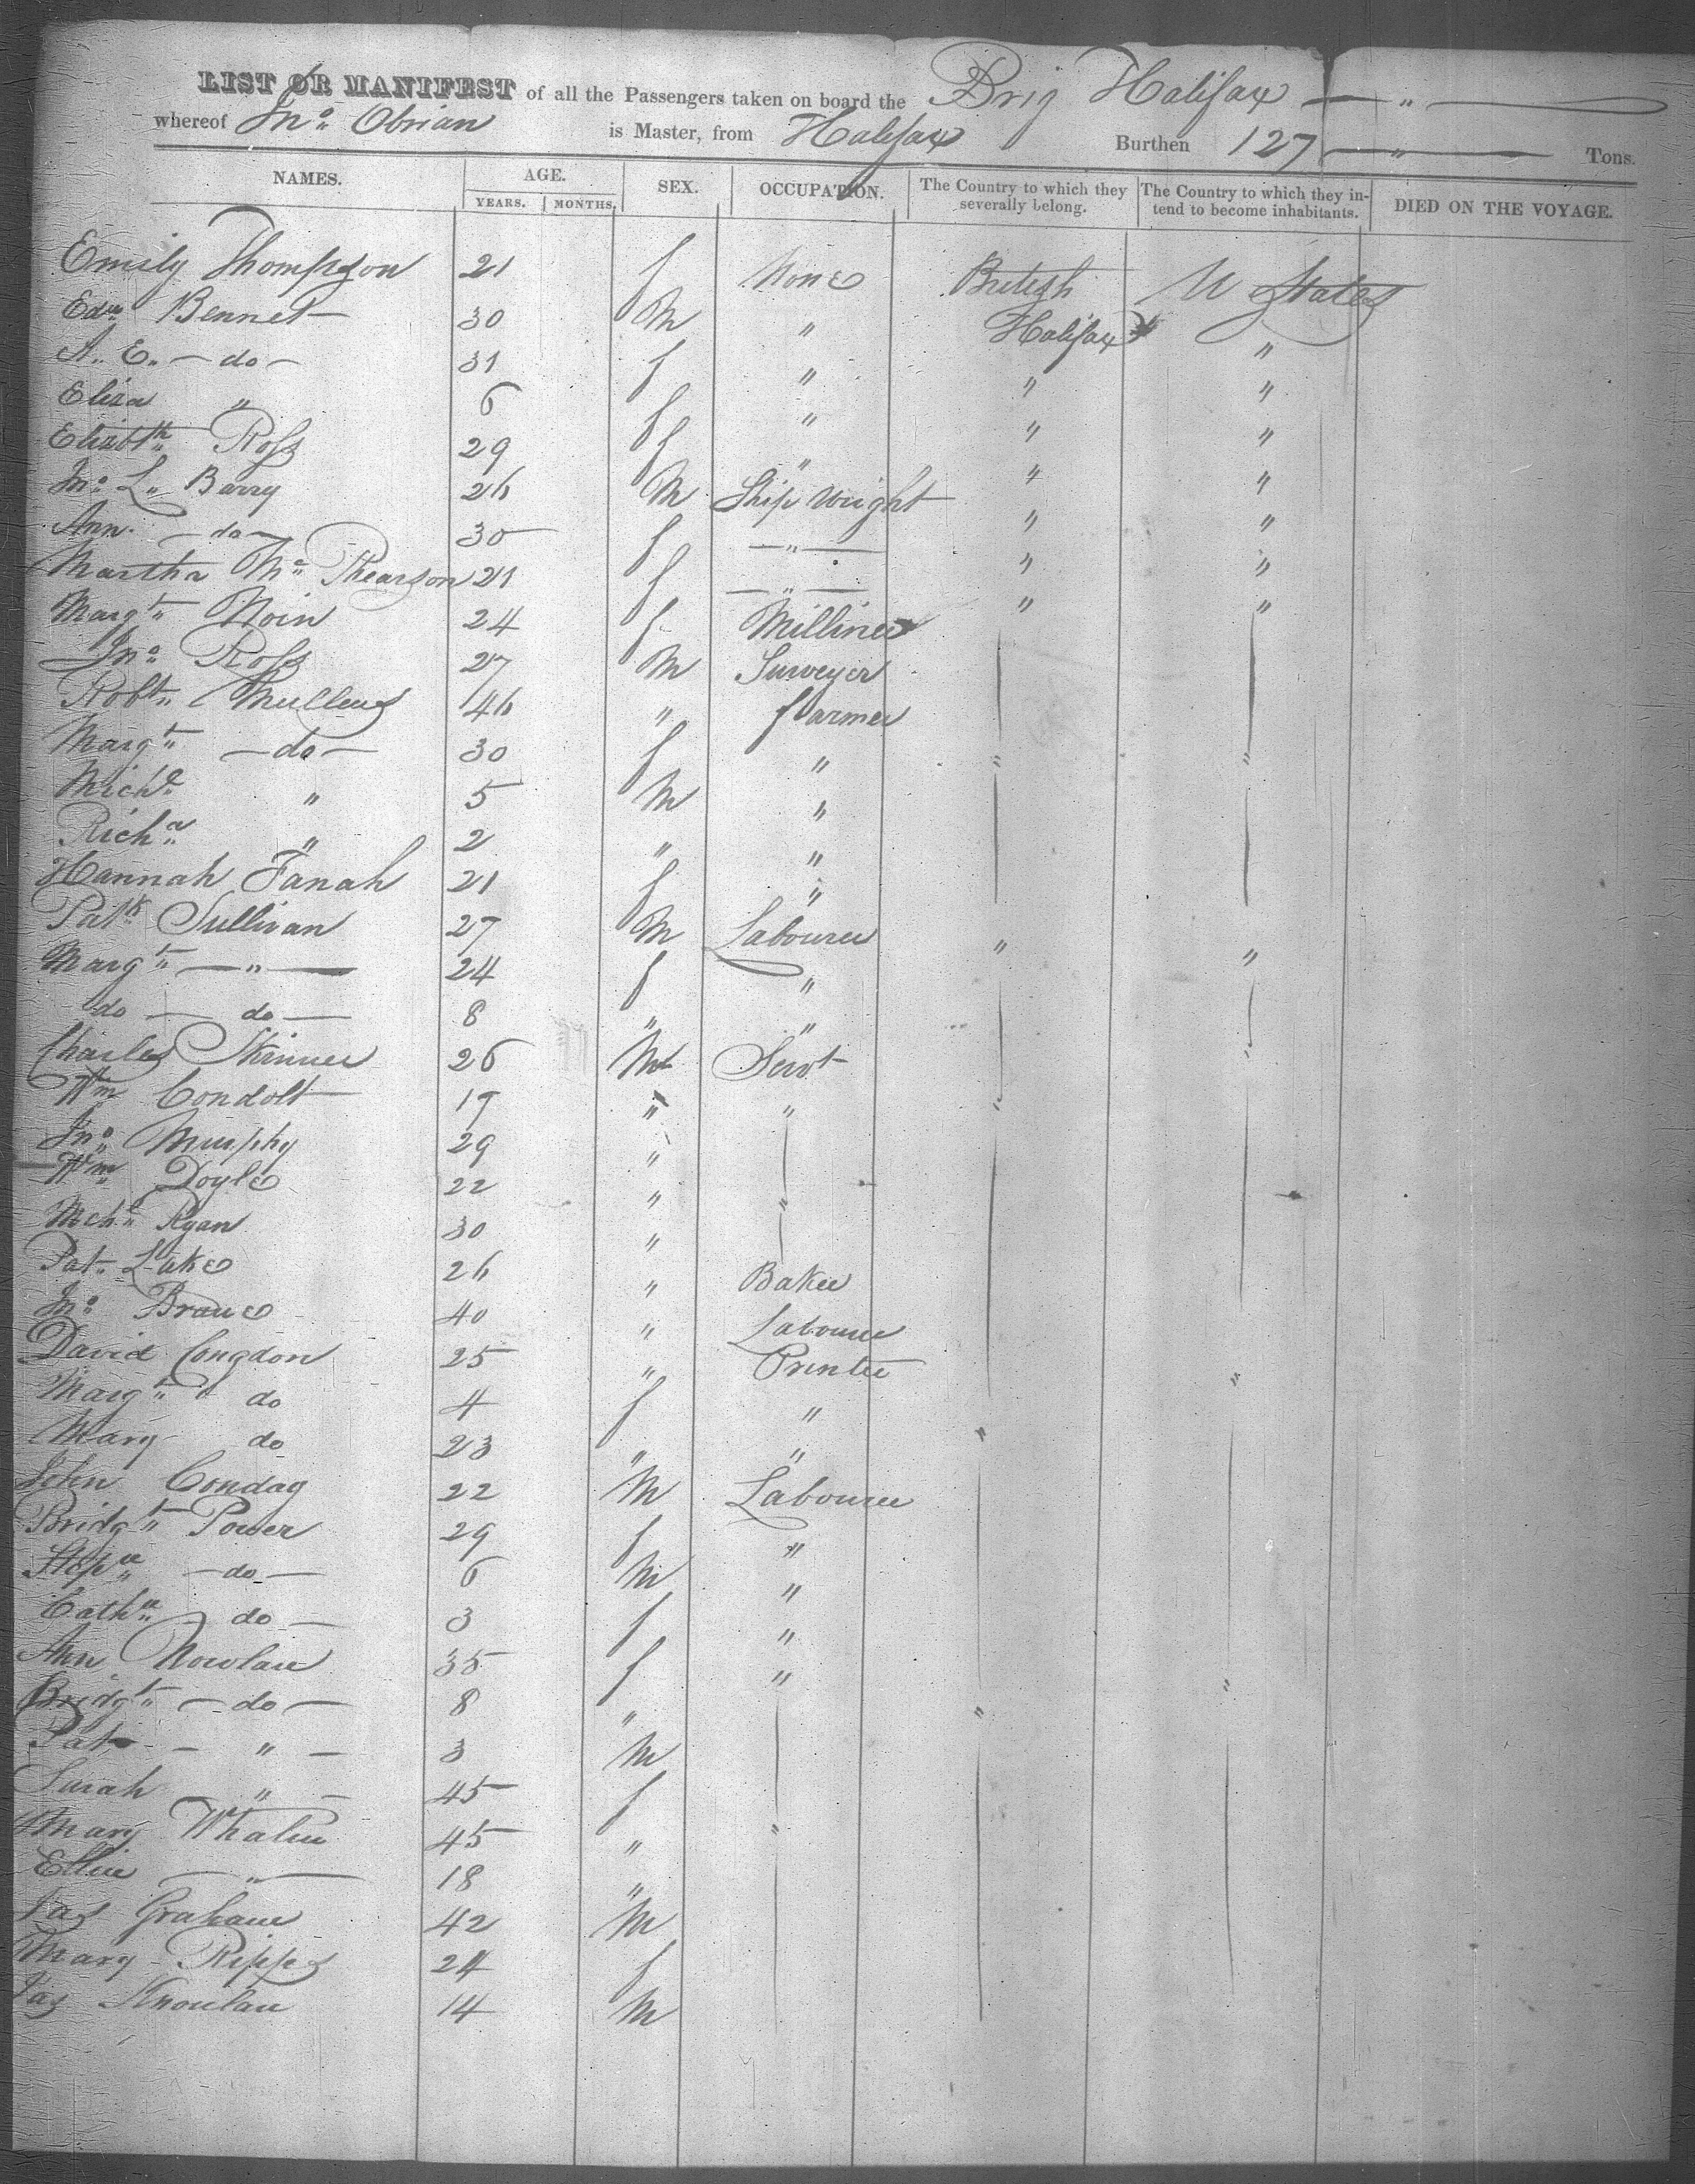 LIST OR MANIFEST of all the Passengers taken on board the Brig Halifax — " —
whereof Jno. Obrian is Master, from Halifax Burthen 127 — " — Tons.
NAMES. AGE. YEARS. MONTHS. SEX. OCCUPATION. The Country to which they severally belong. The Country to which they intend to become inhabitants. DIED ON THE VOYAGE.
Emily Thompson 21 f None British U States
Edw Bennet 30 M " Halifax "
A. E. — do — 31 f " " "
Eliza " 6 f " " "
Elizbth Ross 29 f " " "
Jno. L. Barry 26 M Ship Wright " "
Ann — do — 30 f — " — " "
Martha Mc Phearson 21 f — " — " "
Margt. Noin 24 f Milliner
Jno. Ross 27 M Surveyer
Robt. Mullens 46 " farmer
Margt. — do — 30 f " " "
Michl. " 5 M "
Richd. " 2 " "
Hannah Fanah 21 f "
Patk Sullivan 27 M Labourer " "
Margt. — " — 24 f "
do — do — 8 " "
Charles Skinner 26 M Servt
Wm Condolt 17 " "
Jno. Murphy 29 "
Wm Doyle 22 " "
Mchl. Ryan 30 "
Pat. Luke 26 " Baker
Jno. 40 " Labourer
David Congdon 25 " Printer "
Margt. do 4 f " "
Mary do 23 " "
John Conday 22 M Labourer
Bridgt. Power 29 f "
Stepn. — do — 6 M "
Cathn. do — 3 f "
Ann Nowlan 35 f " "
Bridgt. — do — 8 " "
Pat — " — 3 M
Sarah " — 45 f
Mary Whalen 45 " "
Ellen — " — 18 "
Jas Graham 42 M
Mary Ripps 24 f
Jas Knowlan 14 M